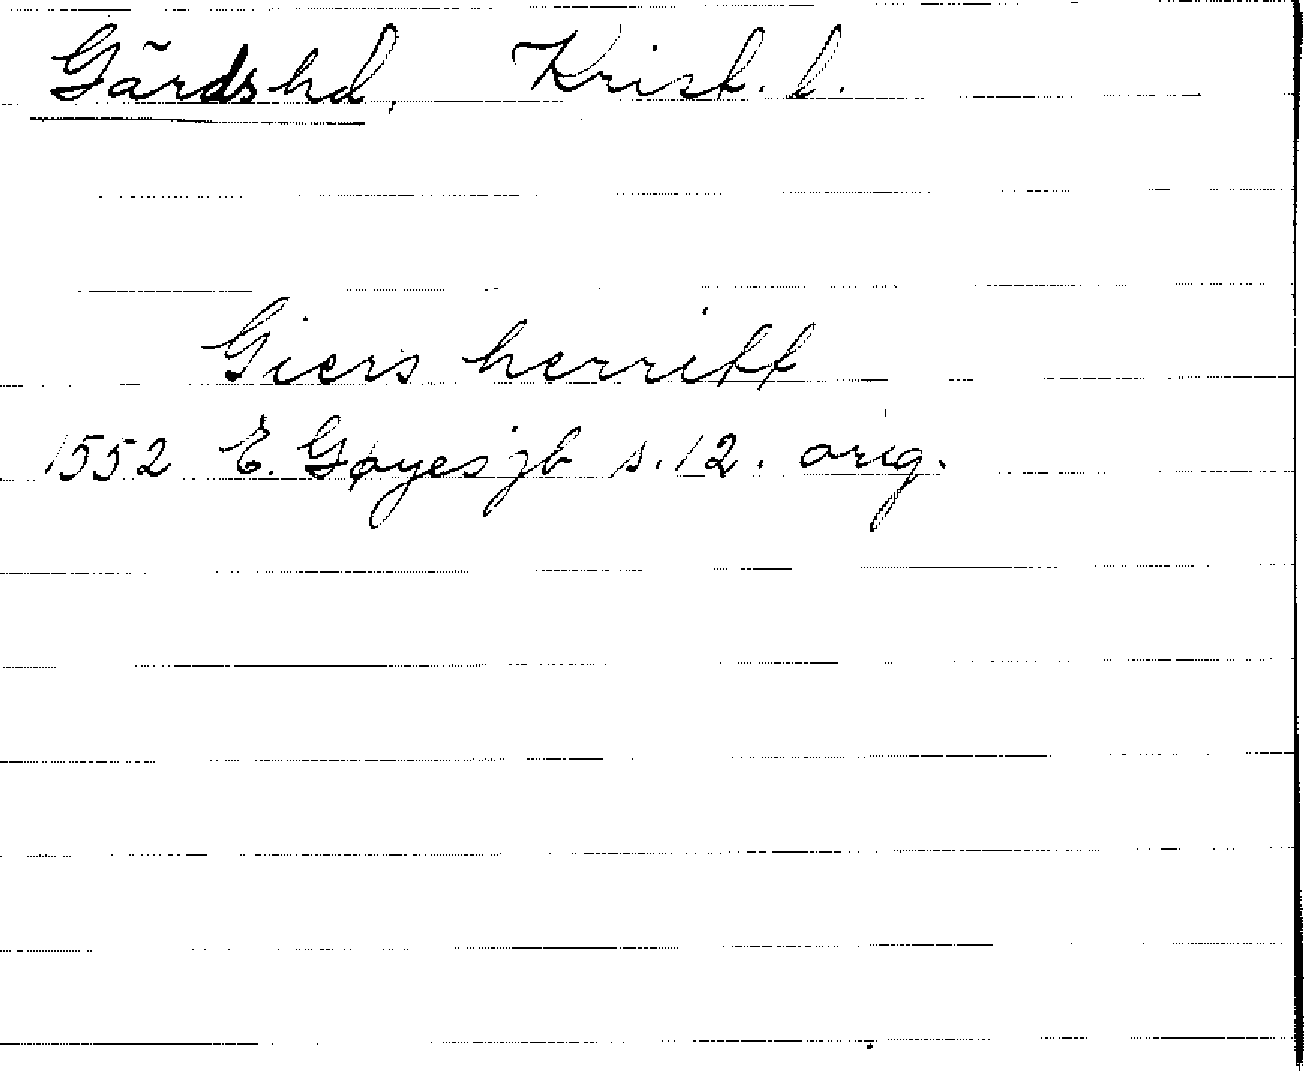 Gärds hd, Krist. l.
Giers herritt
1552 E. Gøyes jb s. 12. orig.